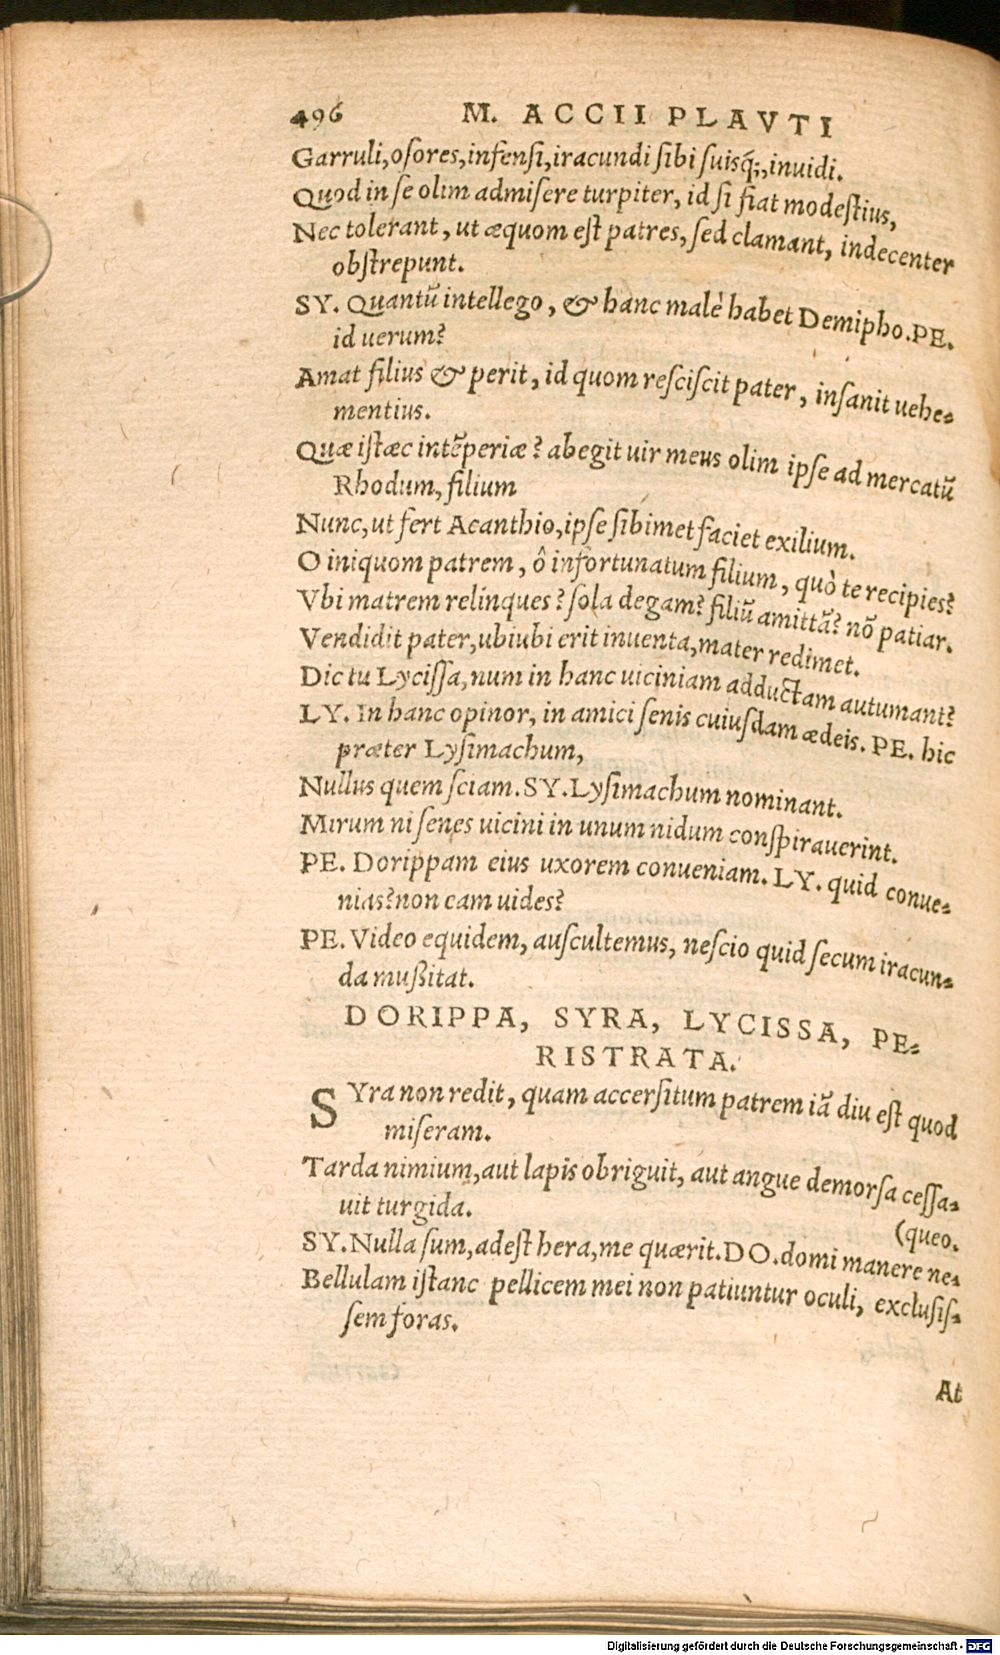 496 M. ACCII PLAVTI
Garruli, osores, infensi, iracundi sibi suisq́;, inuidi.
Quod in se olim admisere turpiter, id si fiat modestius,
Nec tolerant, ut æquom est patres, sed clamant, indecenter
obstrepunt.
SY. Quantũ intellego, & hanc malè habet Demipho. PE.
id uerum?
Amat filius & perit, id quom resciscit pater, insanit uehe-
mentius.
Quæ istæc intẽperiæ? abegit uir meus olim ipse ad mercatũ
Rhodum, filium
Nunc, ut fert Acanthio, ipse sibimet faciet exilium.
O iniquom patrem, ô infortunatum filium, quò te recipies?
Vbi matrem relinques? sola degam? filiũ amittã? nõ patiar.
Vendidit pater, ubiubi erit inuenta, mater redimet.
Dic tu Lycissa, num in hanc uiciniam adductam autumant?
LY. In hanc opinor, in amici senis cuiusdam ædeis. PE. hic
præter Lysimachum,
Nullus quem sciam. SY. Lysimachum nominant.
Mirum ni senes uicini in unum nidum conspirauerint.
PE. Dorippam eius uxorem conueniam. LY. quid conue-
nias? non eam uides?
PE. Video equidem, auscultemus, nescio quid secum iracun-
da mußitat.
DORIPPA, SYRA, LYCISSA, PE-
RISTRATA.
SYra non redit, quam accersitum patrem iã diu est quod
miseram.
Tarda nimium, aut lapis obriguit, aut angue demorsa cessa-
uit turgida.
(queo.
SY. Nulla sum, adest hera, me quærit. DO. domi manere ne-
Bellulam istanc pellicem mei non patiuntur oculi, exclusis-
sem foras.
At
Digitalisierung gefördert durch die Deutsche Forschungsgemeinschaft - DFG